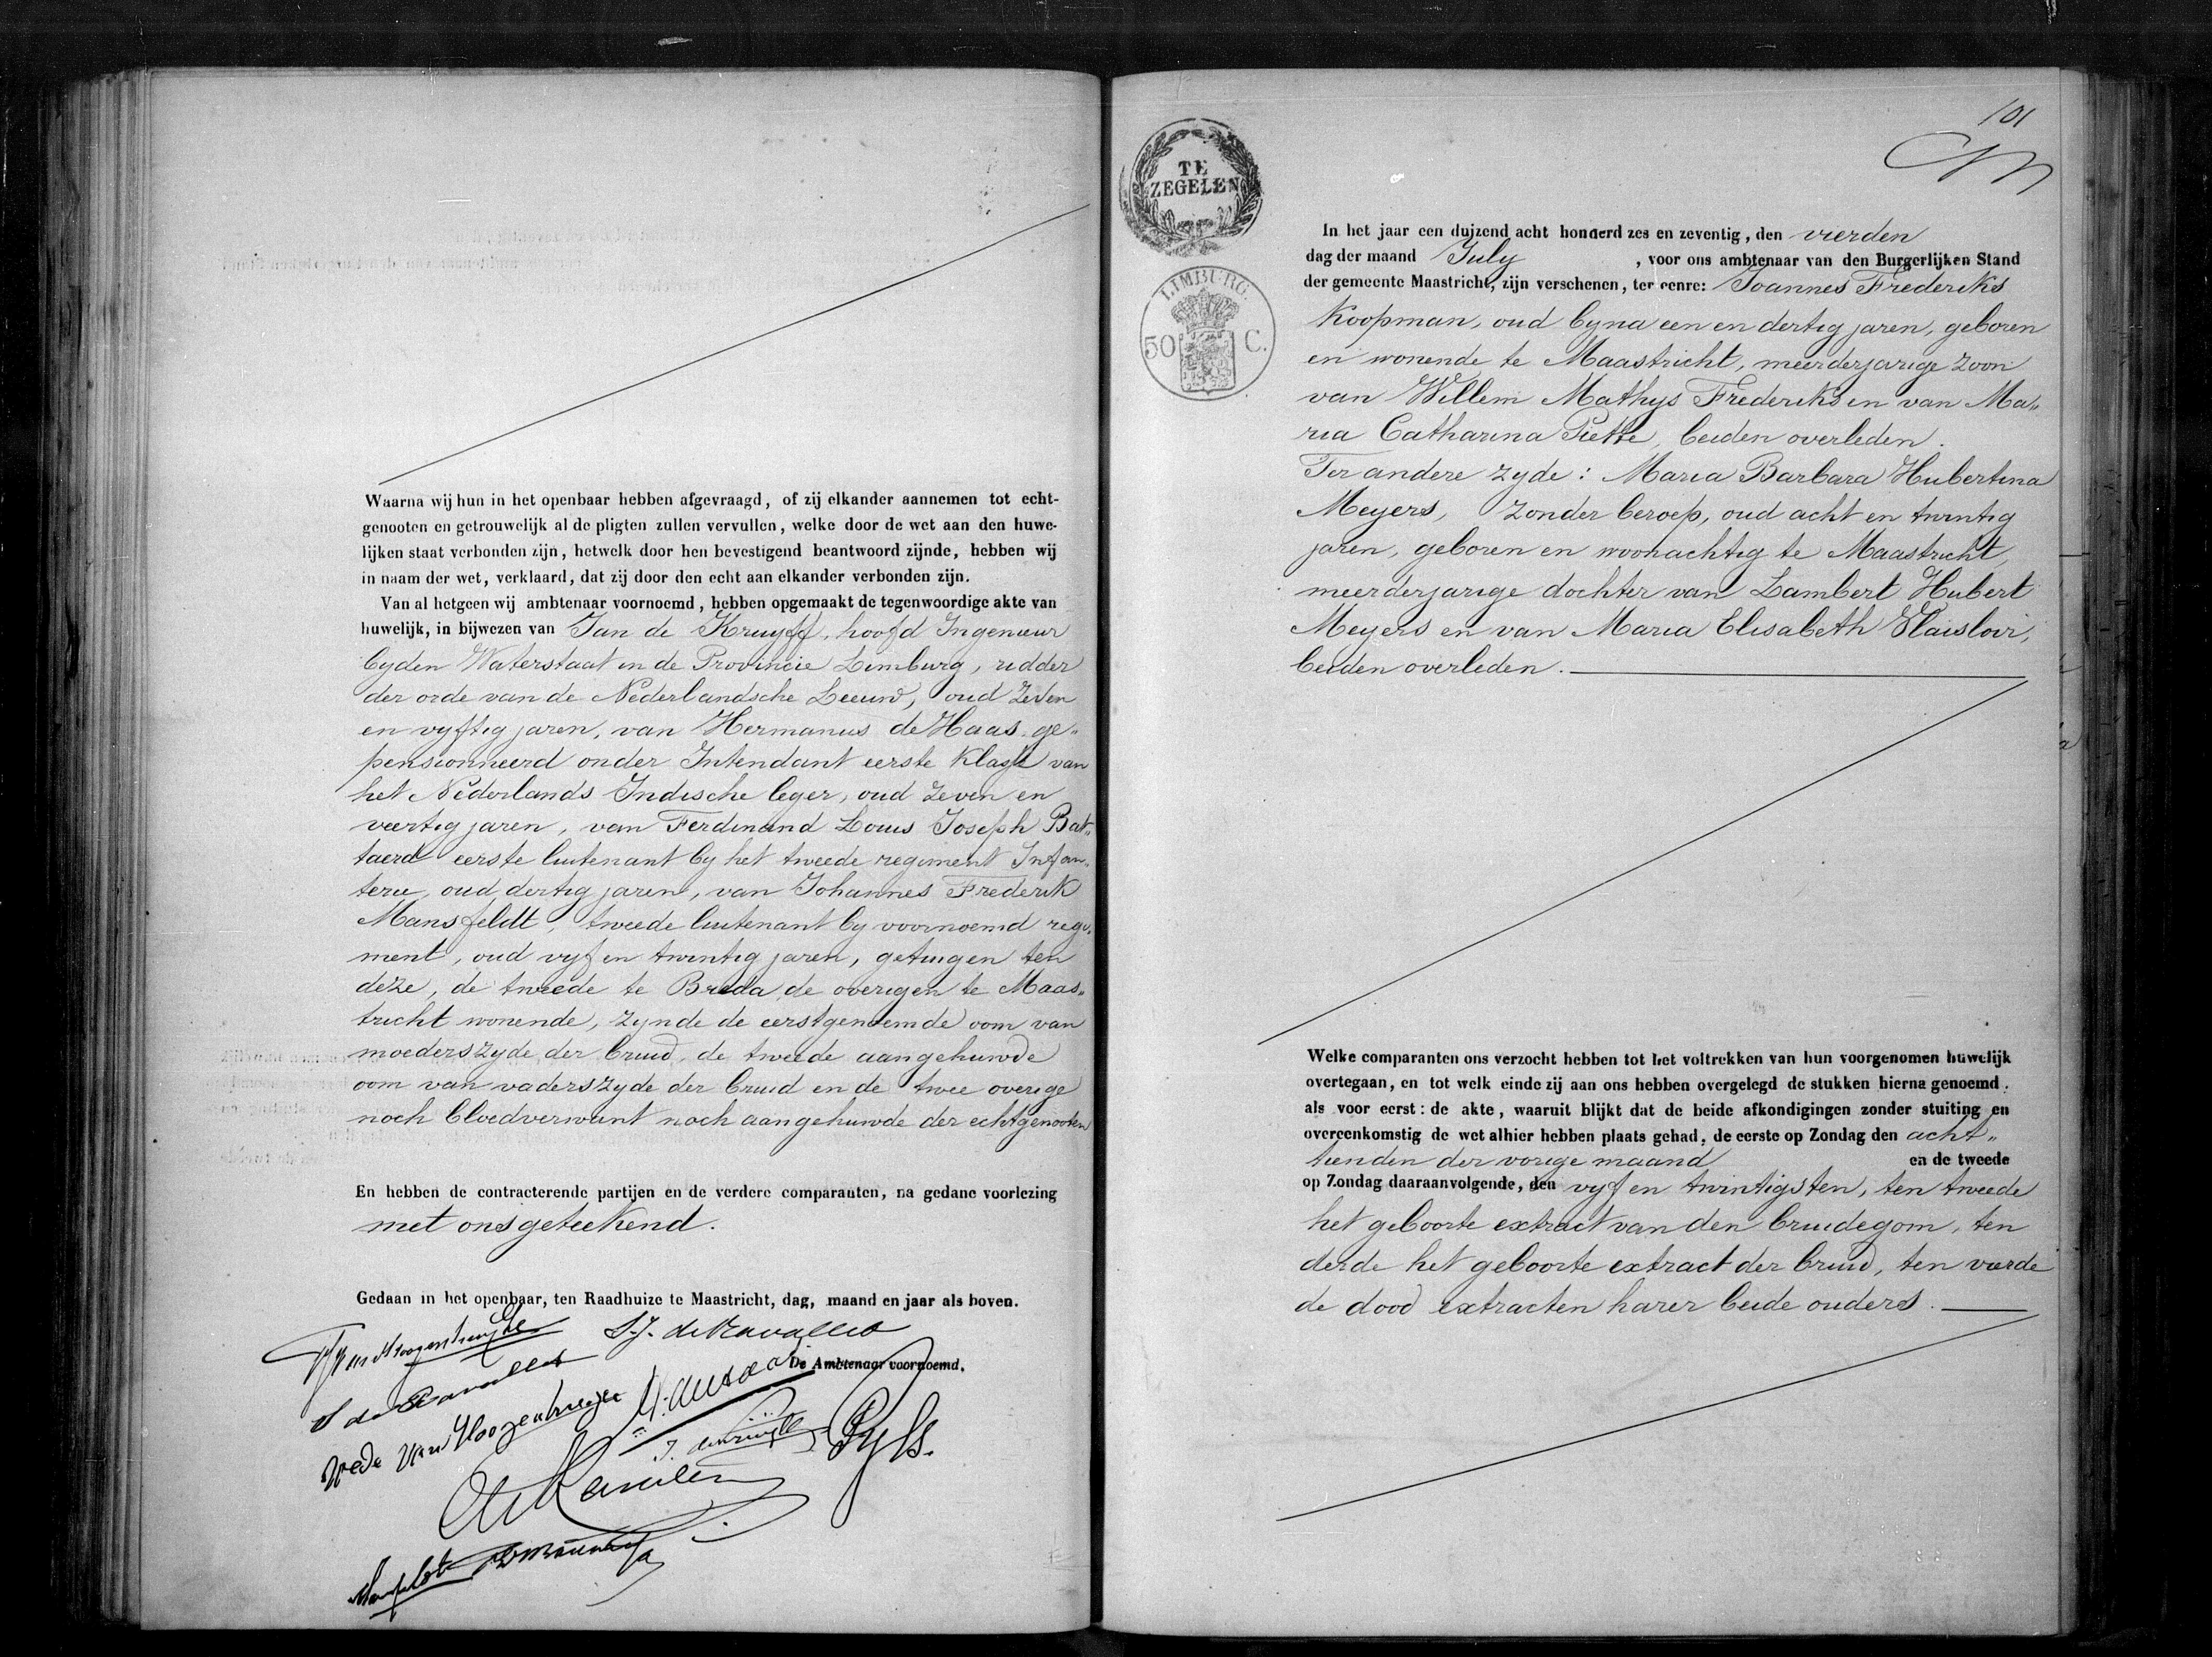 Waarna wij hun in het openbaar hebben afgevraagd, of zij elkander aannemen tot echt-
genooten en getrouwelijk al de pligten zullen vervullen, welke door de wet aan den huwe-
lijken staat verbonden zijn, hetwelk door hen bevestigend beantwoord zijnde, hebben wij
in naam der wet, verklaard, dat zij door den echt aan elkander verbonden zijn.
Van al hetgeen wij ambtenaar voornoemd, hebben opgemaakt de tegenwoordige akte van
huwelijk, in bijwezen van Jan de Kruyff, hoofd Ingenieur
byden Waterstaat in de Provincie Limburg, ridder
der orde van de Nederlandsche Leeuw, oud zeven
en vyftig jaren, van Hermanus de Haas ge„
pensionneerd onder Intendant eerste Klasse van
het Nederlands Indische leger, oud zeven en
veertig jaren, van Ferdinand Louis Joseph Bat„
taerd eerste luitenant by het tweede regiment Infan„
terie, oud dertig jaren, van Johannes Frederik
Mansfeldt, tweede luitenant by voornoemd regi„
ment, oud vyf en twintig jaren, getuigen ten
deze, de tweede te Breda de overigen te Maas„
tricht wonende, zynde de eerstgenoemde oom van
moederszyde der bruid, de tweede aangehuwde
oom van vaderszyde der bruid en de twee overige
noch bloedverwant noch aangehuwde der echtgenooten
En hebben de contracterende partijen en de verdere comparanten, na gedane voorlezing
met ons geteekend.
Gedaan in het openbaar, ten Raadhuize te Maastricht, dag, maand en jaar als boven.
De Ambtenaar voornoemd,
Pyls.
101
TE
ZEGELEN
LIMBURG.
50 C.
In het jaar een duizend acht honderd zes en zeventig, den vierden
dag der maand July , voor ons ambtenaar van den Burgerlijken Stand
der gemeente Maastricht, zijn verschenen, ter eenre: Joannes Frederiks
Koopman, oud byna een en dertig jaren, geboren
en wonende te Maastricht, meerderjarige zoon
van Willem Mathys Frederiks en van Ma„
ria Catharina Piette, beiden overleden.
Ter andere zyde: Maria Barbara Hubertina
Meyers, zonder beroep, oud acht en twintig
jaren, geboren en woonachtig te Maastricht,
meerderjarige dochter van Lambert Hubert
Meyers en van Maria Elisabeth
beiden overleden.
Welke comparanten ons verzocht hebben tot het voltrekken van hun voorgenomen huwelijk
overtegaan, en tot welk einde zij aan ons hebben overgelegd de stukken hierna genoemd.
als voor eerst: de akte, waaruit blijkt dat de beide afkondigingen zonder stuiting en
overeenkomstig de wet alhier hebben plaats gehad, de eerste op Zondag den acht„
tienden der vorige maand en de tweede
op Zondag daaraanvolgende, den vyf en twintigsten, ten tweede
het geboorte extract van den bruidegom, ten
derde het geboorte extract der bruid, ten vierde
de dood extracten harer beide ouders.